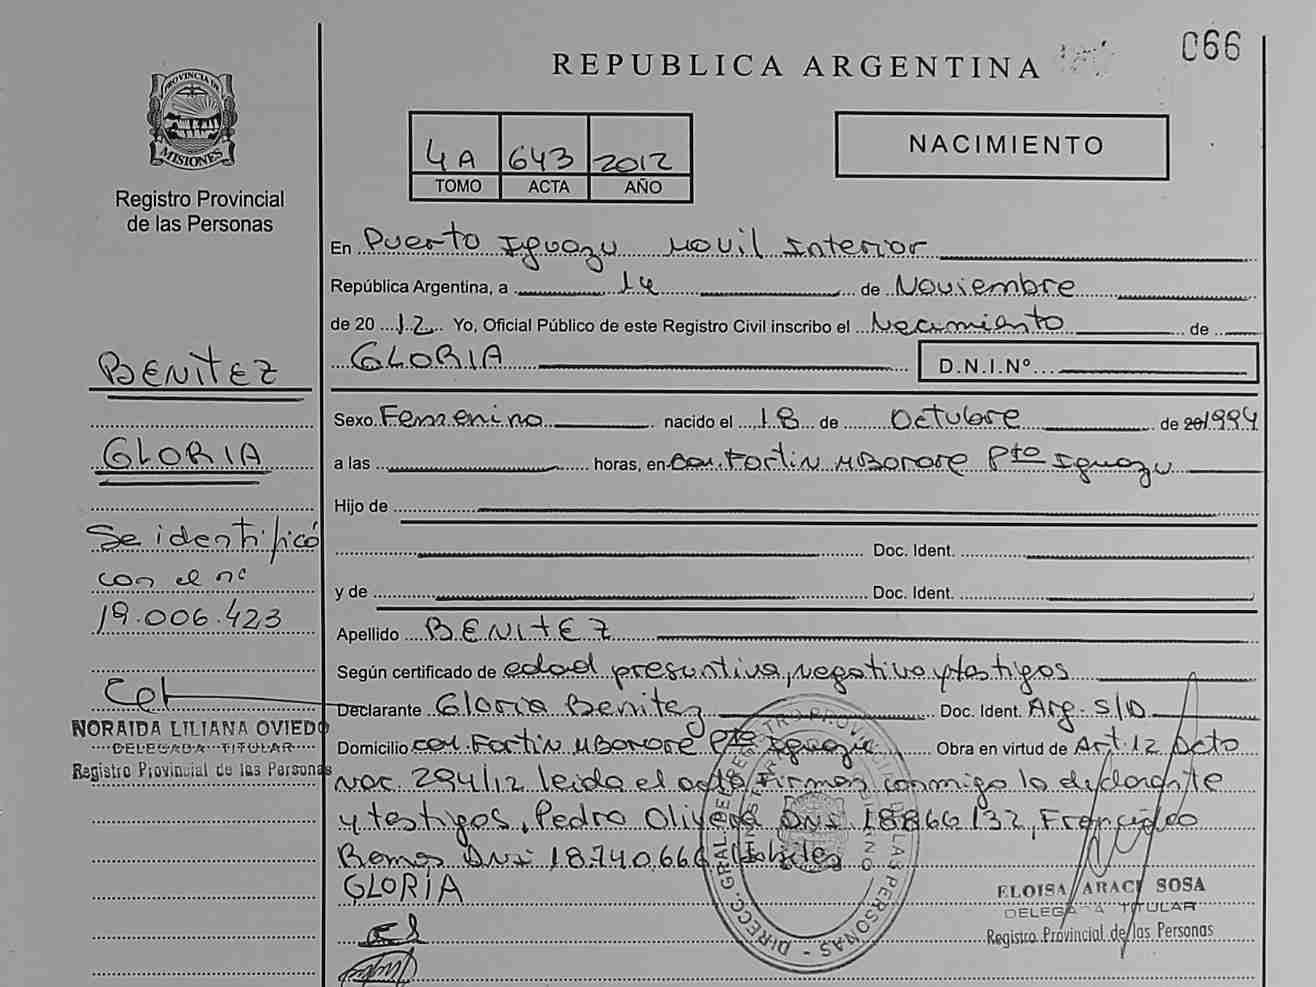 066
REPUBLICA ARGENTINA
PROVINCIA DE
MISIONES
Registro Provincial
de las Personas
4A 643 2012
TOMO ACTA AÑO
NACIMIENTO
En Puerto Iguazu Movil Interior
República Argentina, a 14 de Noviembre
de 20 12 Yo, Oficial Público de este Registro Civil inscribo el Nacimiento de
GLORIA D.N.I.Nº
Sexo Femenino nacido el 18 de Octubre de 20 1994
a las horas, en Com. Fortin MBorore Pto Iguazu
Hijo de
Doc. Ident.
y de Doc. Ident.
Apellido BENITEZ
Según certificado de edad presuntiva, negativa y testigos
Declarante Gloria Benitez Doc. Ident. Arg. S/D
Domicilio Com. Fortin MBorore Pto Iguazu Obra en virtud de Art. 12 Dcto
nac. 294/12 leida el acta firman conmigo la declarante
y testigos, Pedro Olivera DNI 18866132, Francisco
Ramos DNI 18.740.666 Habiles
GLORIA
BENITEZ
GLORIA
Se identificó
con el nº
19.006.423
NORAIDA LILIANA OVIEDO
DELEGADA TITULAR
Registro Provincial de las Personas
ELOISA ARACI SOSA
DELEGADA TITULAR
Registro Provincial de las Personas
DIRECC. GRAL. DEL REGISTRO PROVINCIAL DE LAS PERSONAS